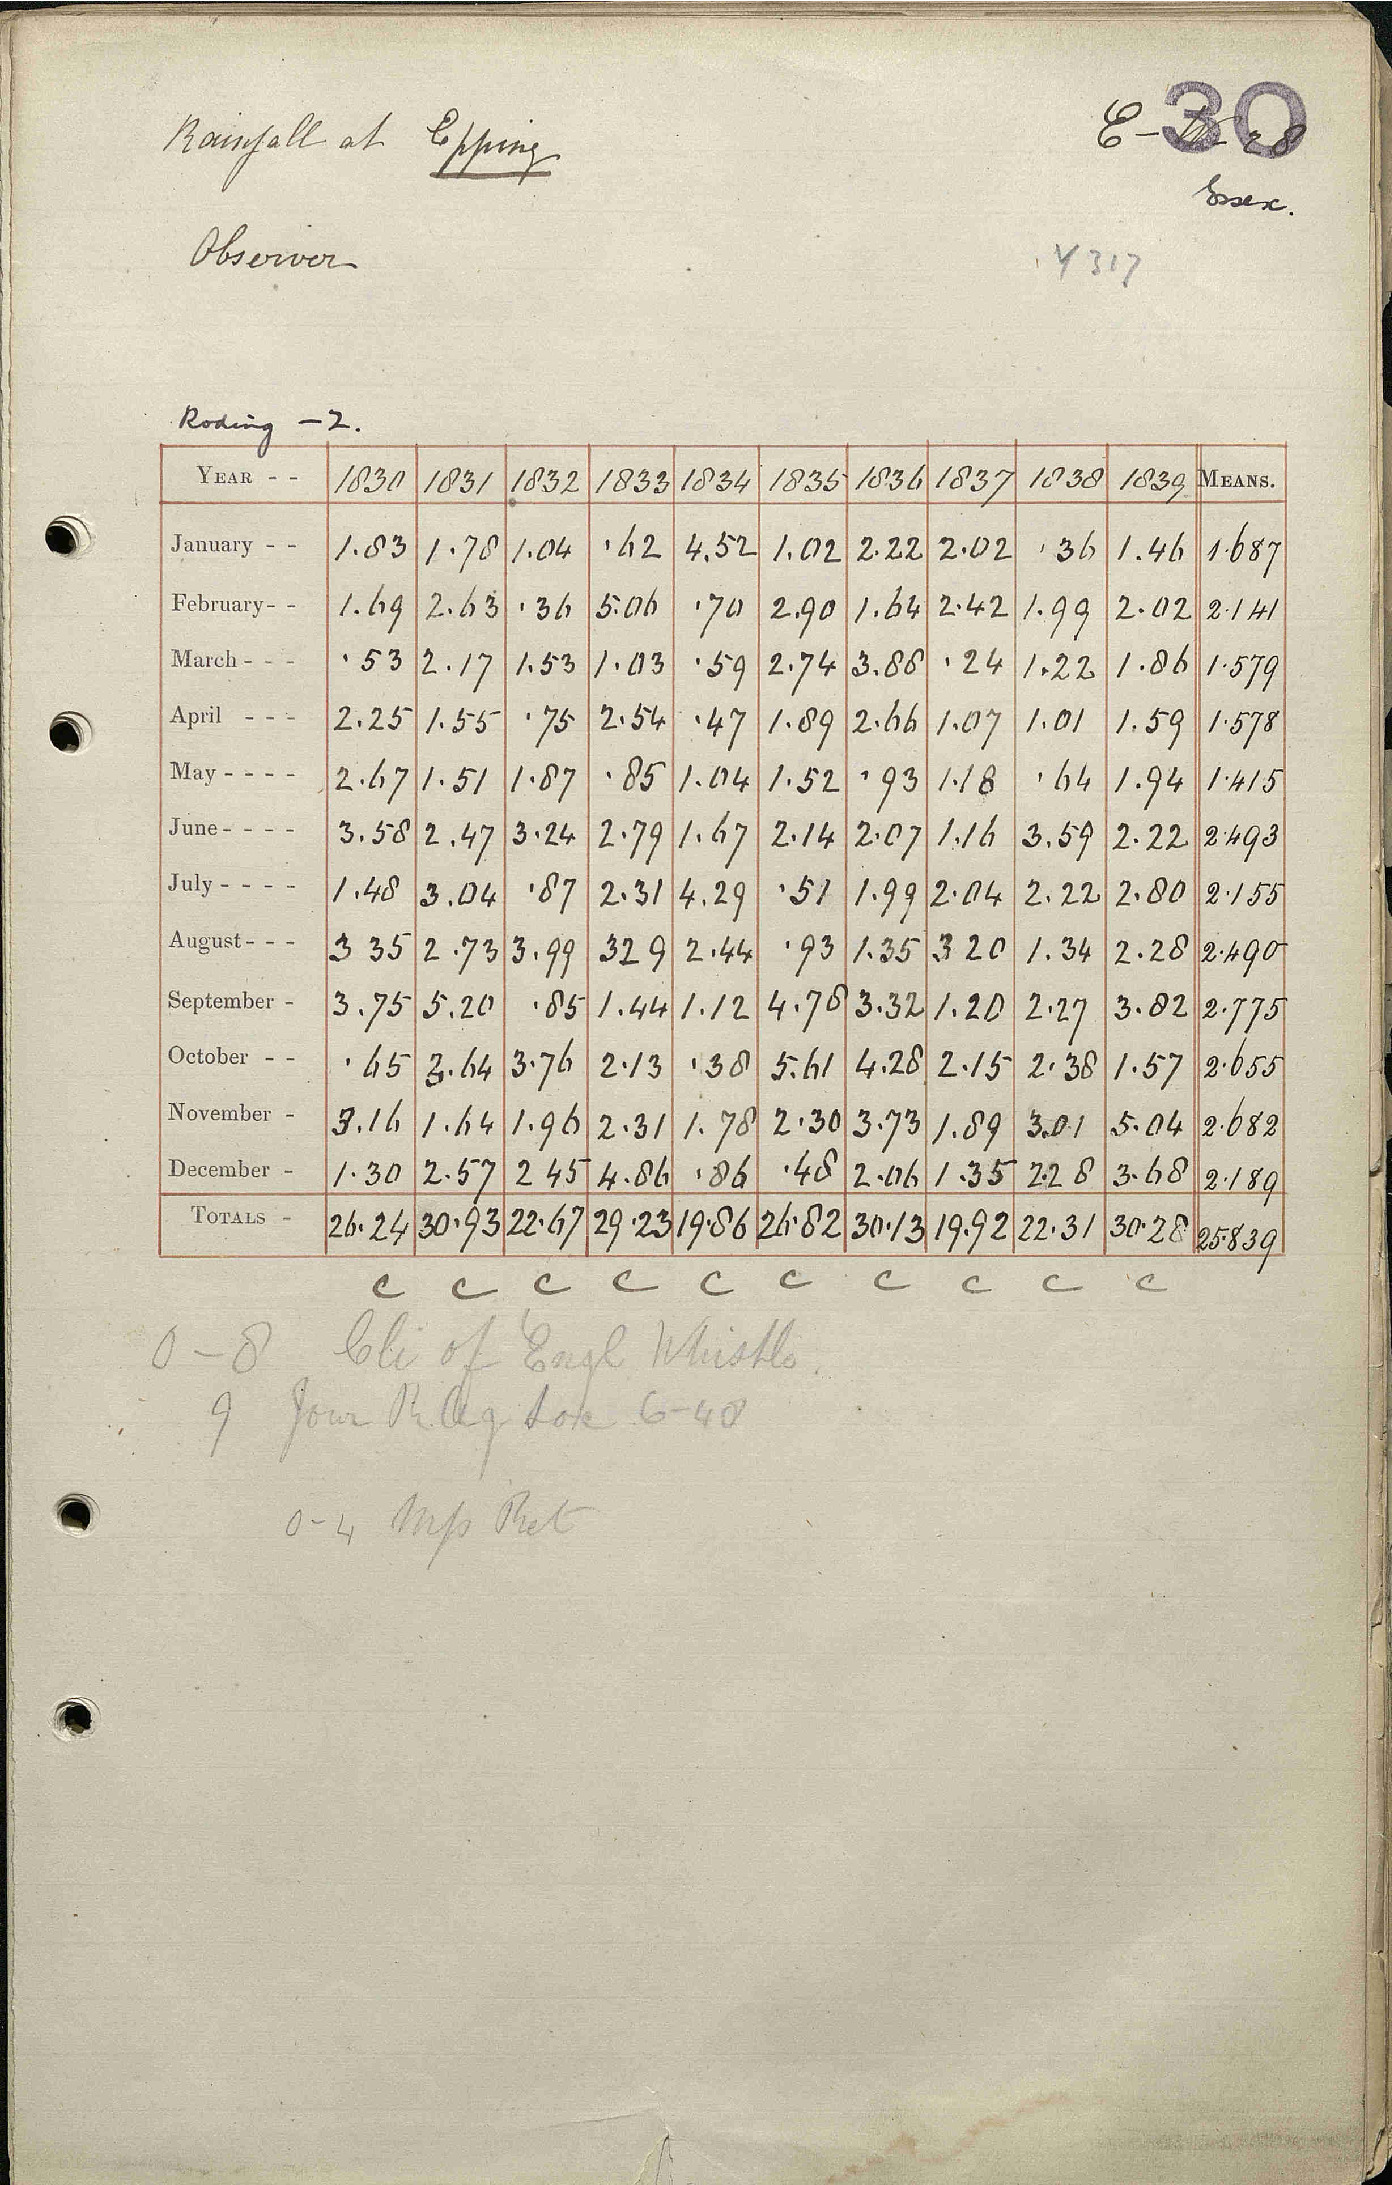 30
Rainfall at Epping
E - 28
Essex.
Observer
317
Roding - 2.
YEAR - - 1830 1831 1832 1833 1834 1835 1836 1837 1838 1839 MEANS.
January - - 1.83 1.78 1.04 .62 4.52 1.02 2.22 2.02 .36 1.46 1.687
February - - 1.69 2.63 .36 5.06 .70 2.90 1.64 2.42 1.99 2.02 2.141
March - - - .53 2.17 1.53 1.03 .59 2.74 3.88 .24 1.22 1.86 1.579
April - - - 2.25 1.55 .75 2.54 .47 1.89 2.66 1.07 1.01 1.59 1.578
May - - - - 2.67 1.51 1.87 .85 1.04 1.52 .93 1.18 .64 1.94 1.415
June - - - - 3.58 2.47 3.24 2.79 1.67 2.14 2.07 1.16 3.59 2.22 2.493
July - - - - 1.48 3.04 .87 2.31 4.29 .51 1.99 2.04 2.22 2.80 2.155
August - - - 3 35 2.73 3.99 329 2.44 .93 1.35 3 20 1.34 2.28 2.490
September - 3.75 5.20 .85 1.44 1.12 4.78 3.32 1.20 2.27 3.82 2.775
October - - .65 3.64 3.76 2.13 .38 5.61 4.28 2.15 2.38 1.57 2.655
November - 3.16 1.64 1.96 2.31 1.78 2.30 3.73 1.89 3.01 5.04 2.682
December - 1.30 2.57 2 45 4.86 .86 .48 2.06 1.35 228 3.68 2.189
TOTALS - 26.24 30.93 22.67 29.23 19.86 26.82 30.13 19.92 22.31 30.28 25.839
c c c c c c c c c c
0-8 Cli of Engl Whistle.
9 Jour R. Ag Soc 6-48
0-4 Mps Ret